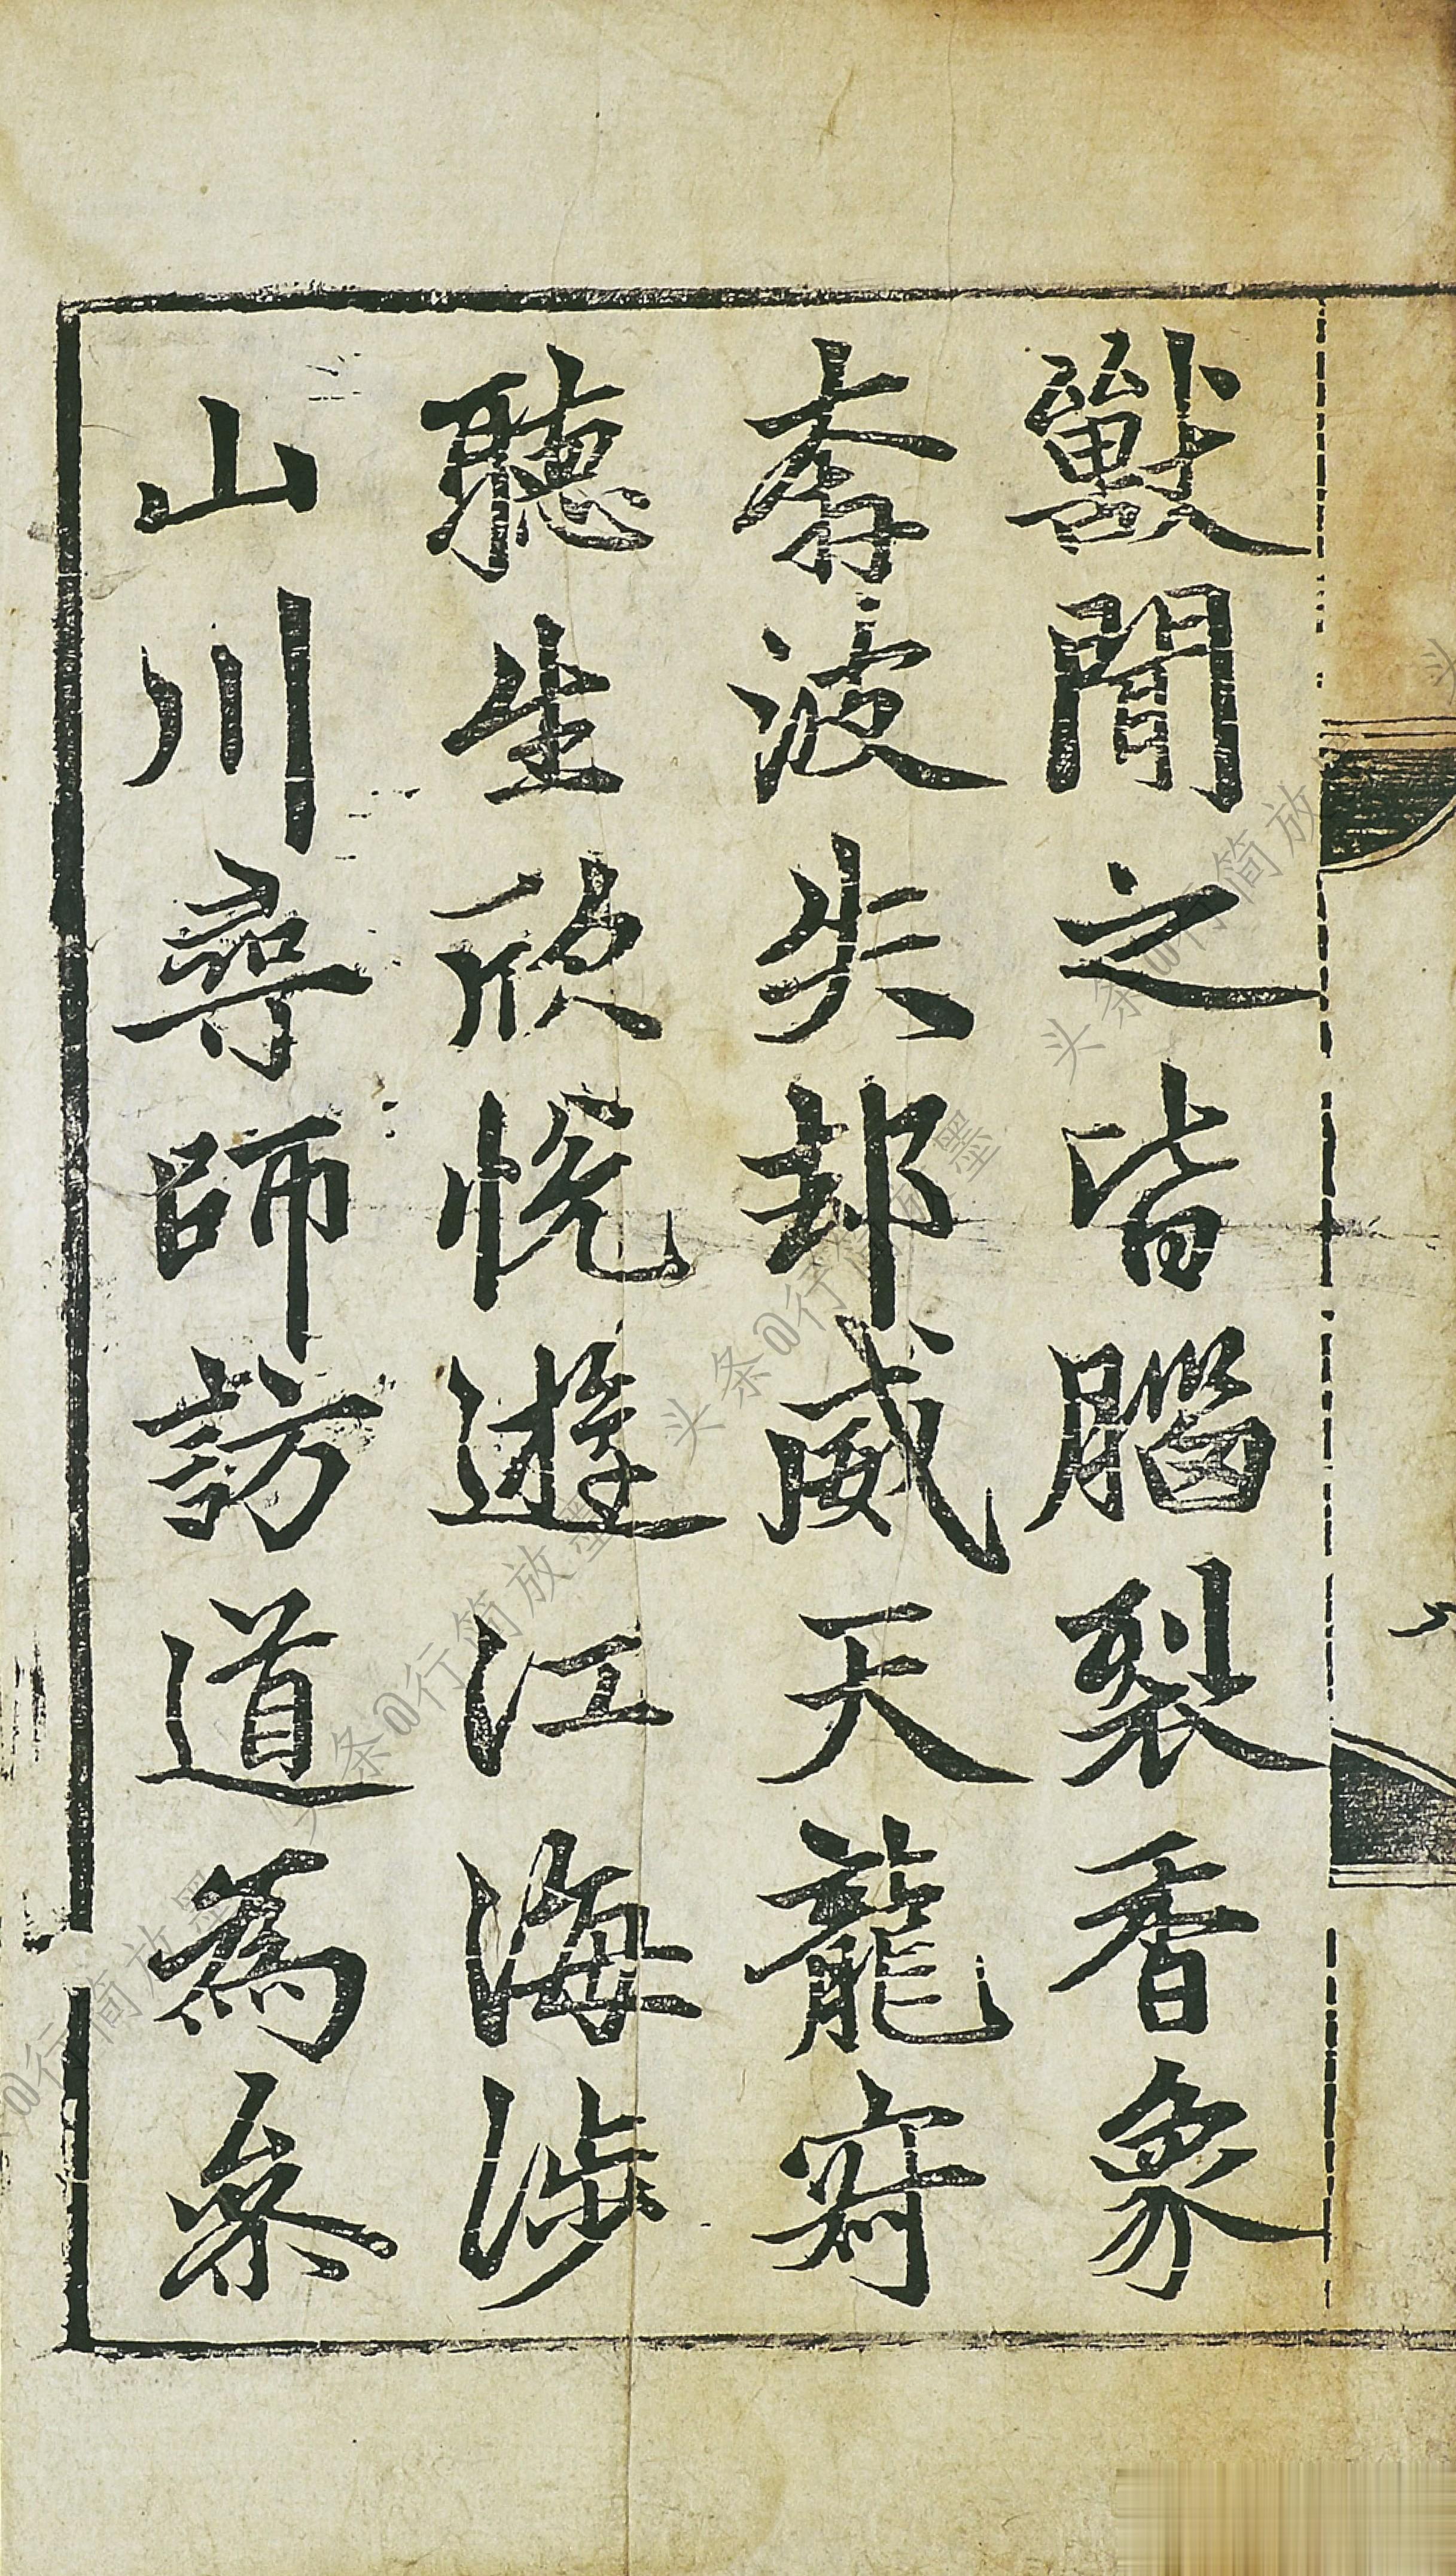 獸聞之皆腦裂香象
奔波失却威天龍寂
聽生欣悅遊江海涉
山川尋師訪道為叅
头条@行简放墨
头条@行简放墨
头条@行简放墨
@行简放墨